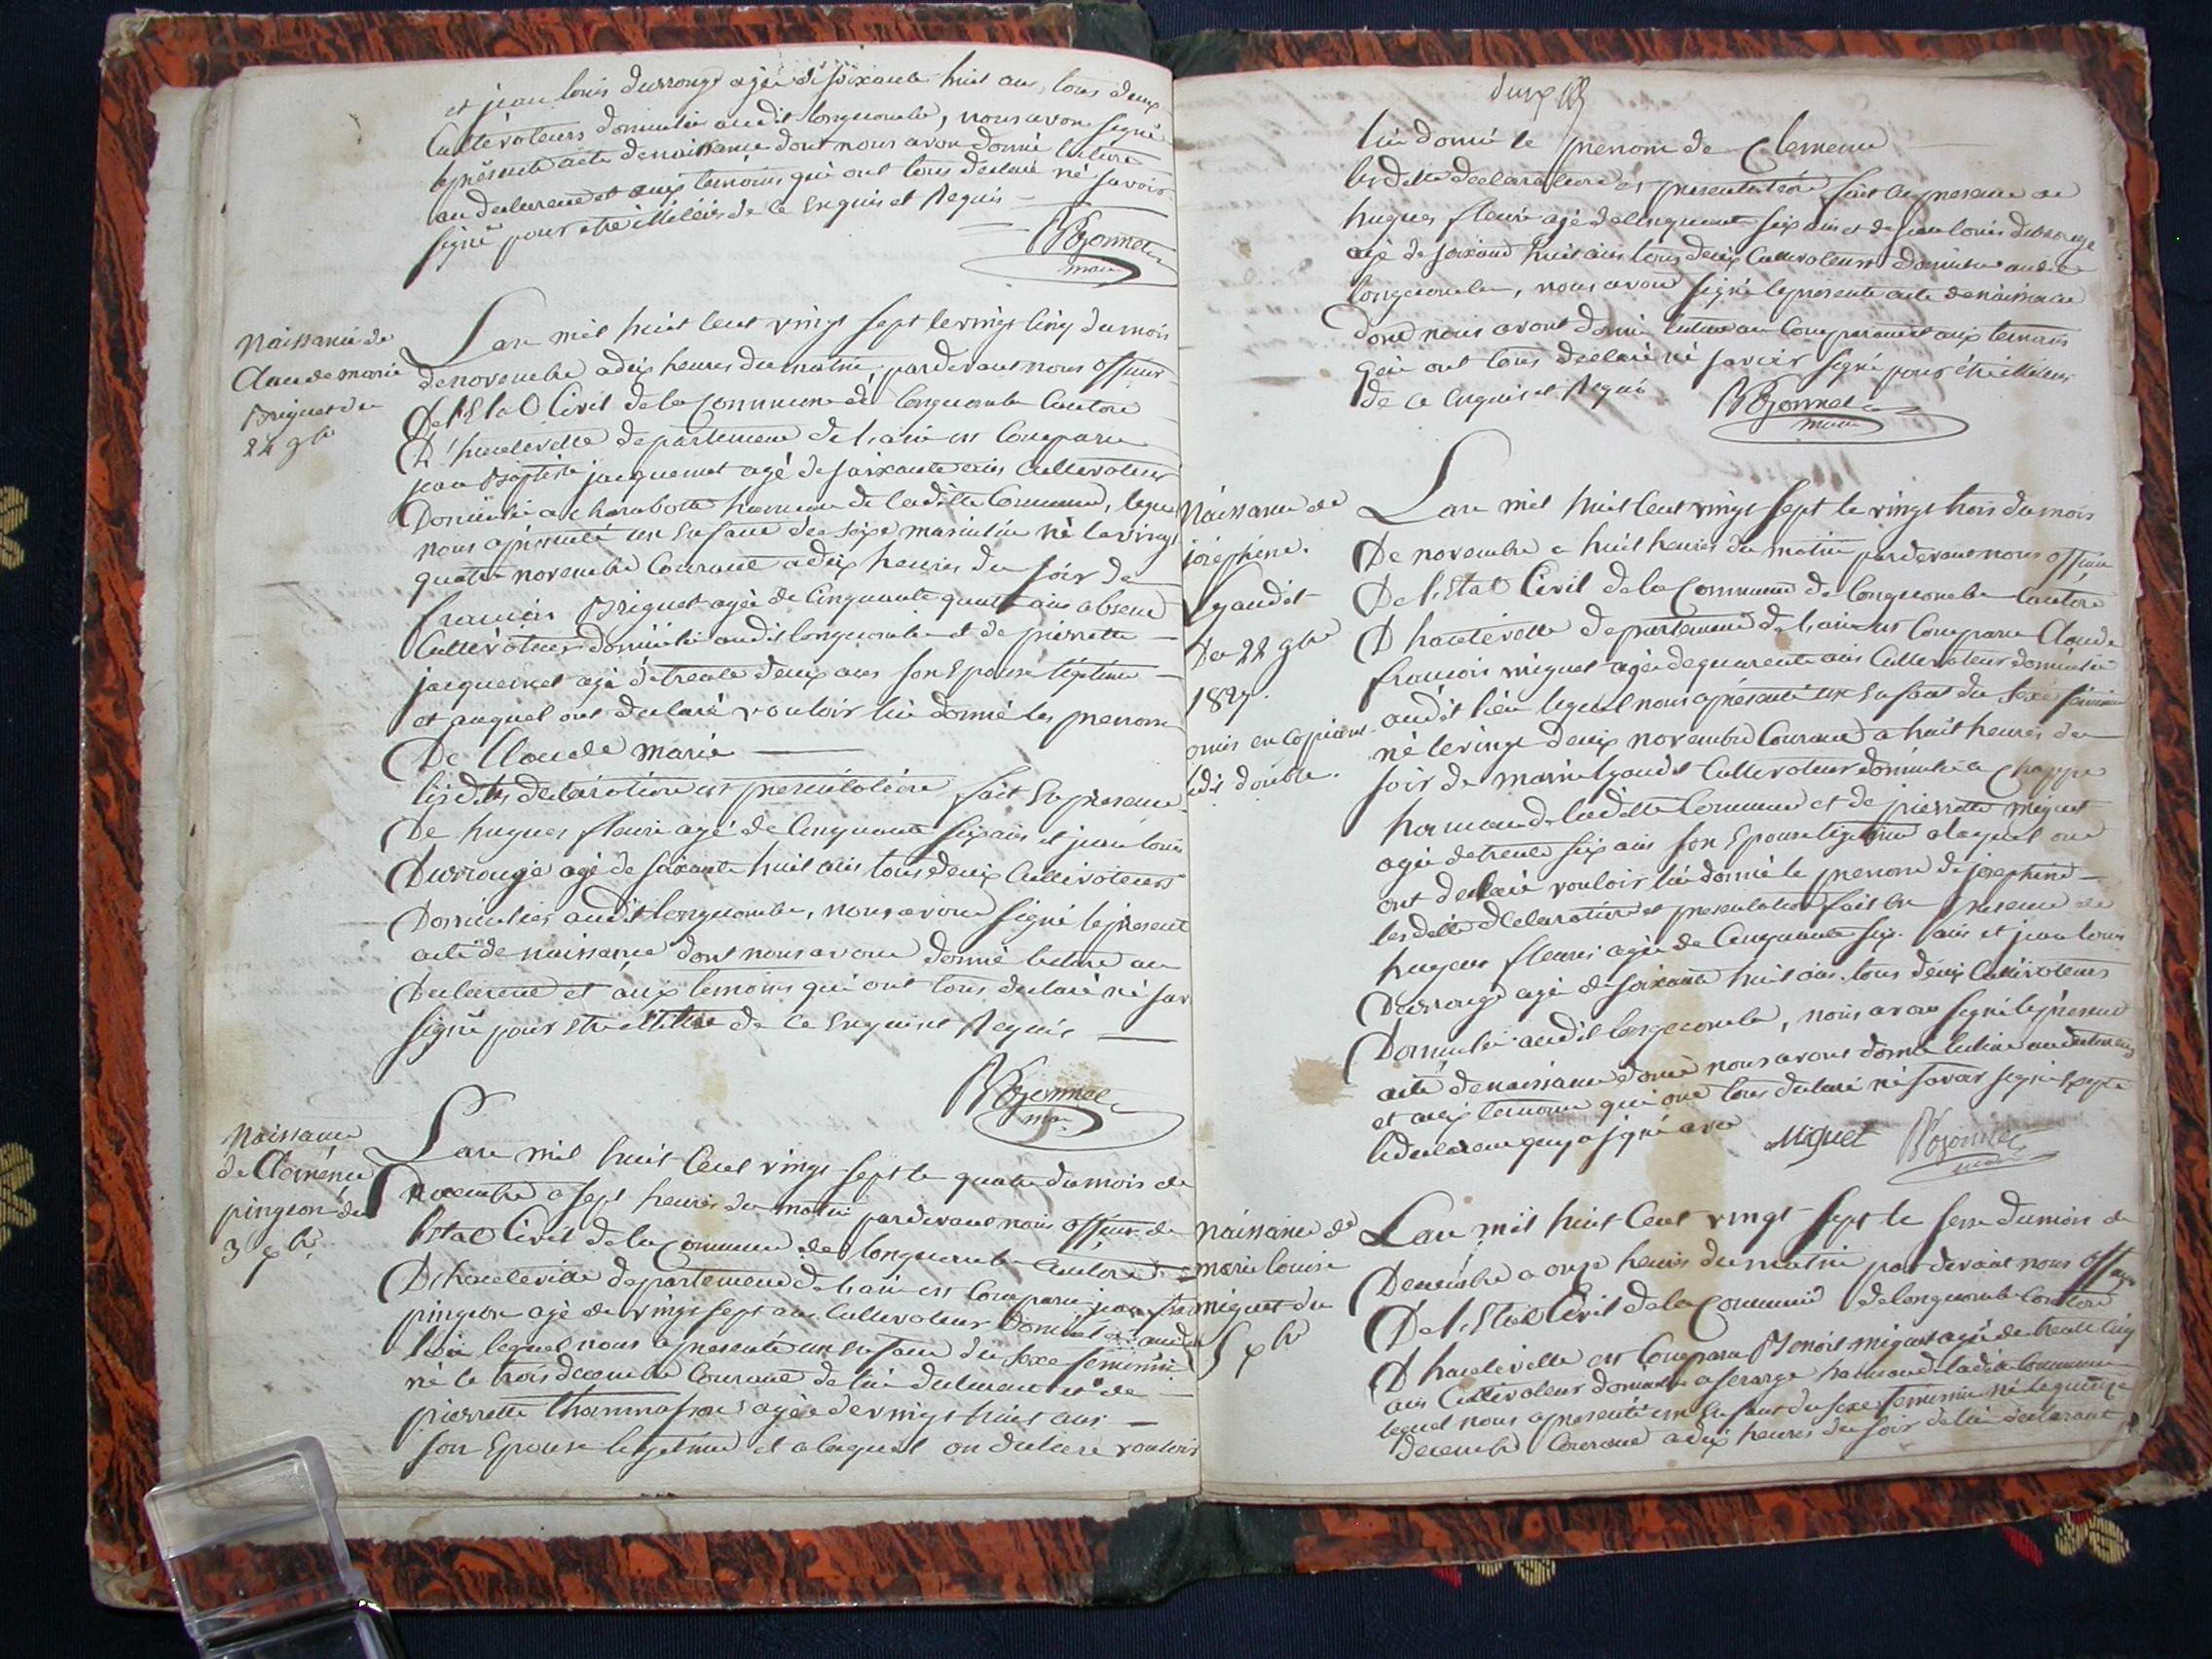 et jean louis durrouge agée de soixante huit ans, tous deux
Cultivateurs domicilié audit longecombe, nous avons signé
le présente acte de naissance dont nous avon donné lecture
au declarant et aux temoins qui ont tous declaré né savoir
signé pour etre illiteré de ce Enquis et Requis
maire
Naissance de
Claude marie
Briguet du
24 9bre
Lan mil huit Cent vingt sept le vingt cinq du mois
de novembre a dix heures du matin pardevant nous officier
De l'Etat Civil de la Commune de longecombe Canton
D'hauteville departement de l'ain est Comparu
jean Baptiste jacquemet agé de soixante ans Cultivateur
Domicilié a Charabotte hameau de ladite Commune, lequel
nous a présenté un Enfant de sexe masculin né le vingt
quatre novembre Courant a dix heures du soir de
francois Briguet agée de Cinquante quatre ans absent
Cultivateur domicilié audit longecombe et de pierrette
jacquemet agé de trente deux ans son Epouse légitime
et auquel ont declaré vouloir lui donné les prenoms
De Claude marie
lesdites declaration et presentation fait En présence
De hugues fleuri agé de Cinquante six ans et jean louis
Durrouge agé de soixante huit ans tous deux Cultivateurs
Domiciliés audit longecombe, nous avons signé le present
acte de naissance dont nous avons donné lecture au
Declarant et aux temoins qui ont tous declaré né sav
signé pour etre illiteré de ce Enquis et Requis
ma
Naissance
de Clemence
pingeon du
3 xbre
Lan mil huit Cent vingt sept le quatre du mois de
decembre a sept heures du matin pardevant nous officier de
letat Civil de la Commune de longecombe Canton
D'hauteville departement de l'ain est Comparu jean
pingeon agé de vingt sept ans Cultivateur domicilié audit
lieu lequel nous a presenté un Enfant du sexe féminin
né le trois decembre Courant de lui declarant et de
pierrette thommasson agée de vingt huit ans
son Epouse legitime et a laquel on declare vouloir
lui donné le prenom de Clemence
lesdite declaration et presentation fait En presence de
hugues fleuri agé de Cinquante six ans et de jean louis durrouge
agé de soixante huit ans tous deux Cultivateurs domicilié audit
longecombe, nous avons signé le présente acte de naissance
dont nous avons donné lecture au Comparant et aux temoins
qui ont tous declaré né savoir signé pour etre illiteré
de ce Enquis et Requis
maire
Naissance de
josephine
Lyaudet
du 22 9bre
1827.
omis en copiant
ledit double.
Lan mil huit Cent vingt sept le vingt trois du mois
De novembre a huit heures du matin pardevant nous officier
De l'Etat Civil de la Commune de longecombe Canton
D hauteville departement de l'ain est Comparu Claude
francois miguet agée de quarente ans Cultivateur domicilié
audit lieu lequel nous a présenté un Enfant du sexe féminin
né le vingt deux novembre Courant a huit heures du
soir de marie Lyaudet Cultivateur domicilié a
hameau de ladite Commune et de pierrette miguet
agée de trente six ans son Epouse légitime a laquel on
ont declaré vouloir lui donné le prenom de josephine
lesdite declaration et presentation fait En presence de
hugues fleuri agée de Cinquante six ans et jean louis
Durrouge agé de soixante huit ans tous deux Cultivateurs
Domicilié audit longecombe, nous avons signé le present
acte de naissance dont nous avons donné lecture au declarant
et aux temoins qui ont tous declaré né savoir signé Excepté
le declarant qui a signé avec Miguet
Naissance de
marie louise
miguet du
15 xbre
Lan mil huit Cent vingt sept le seize du mois de
Decembre a onze heures du matin pardevant nous officier
De l'Etat Civil de la Commune de longecombe Canton
D hauteville est Comparu Benoit miguet agé de trente cinq
ans Cultivateur domicilié a hameau de ladite Commune
lequel nous a presenté un Enfant du sexe feminin né le quinze
decembre Courant a dix heures du soir de lui declarant